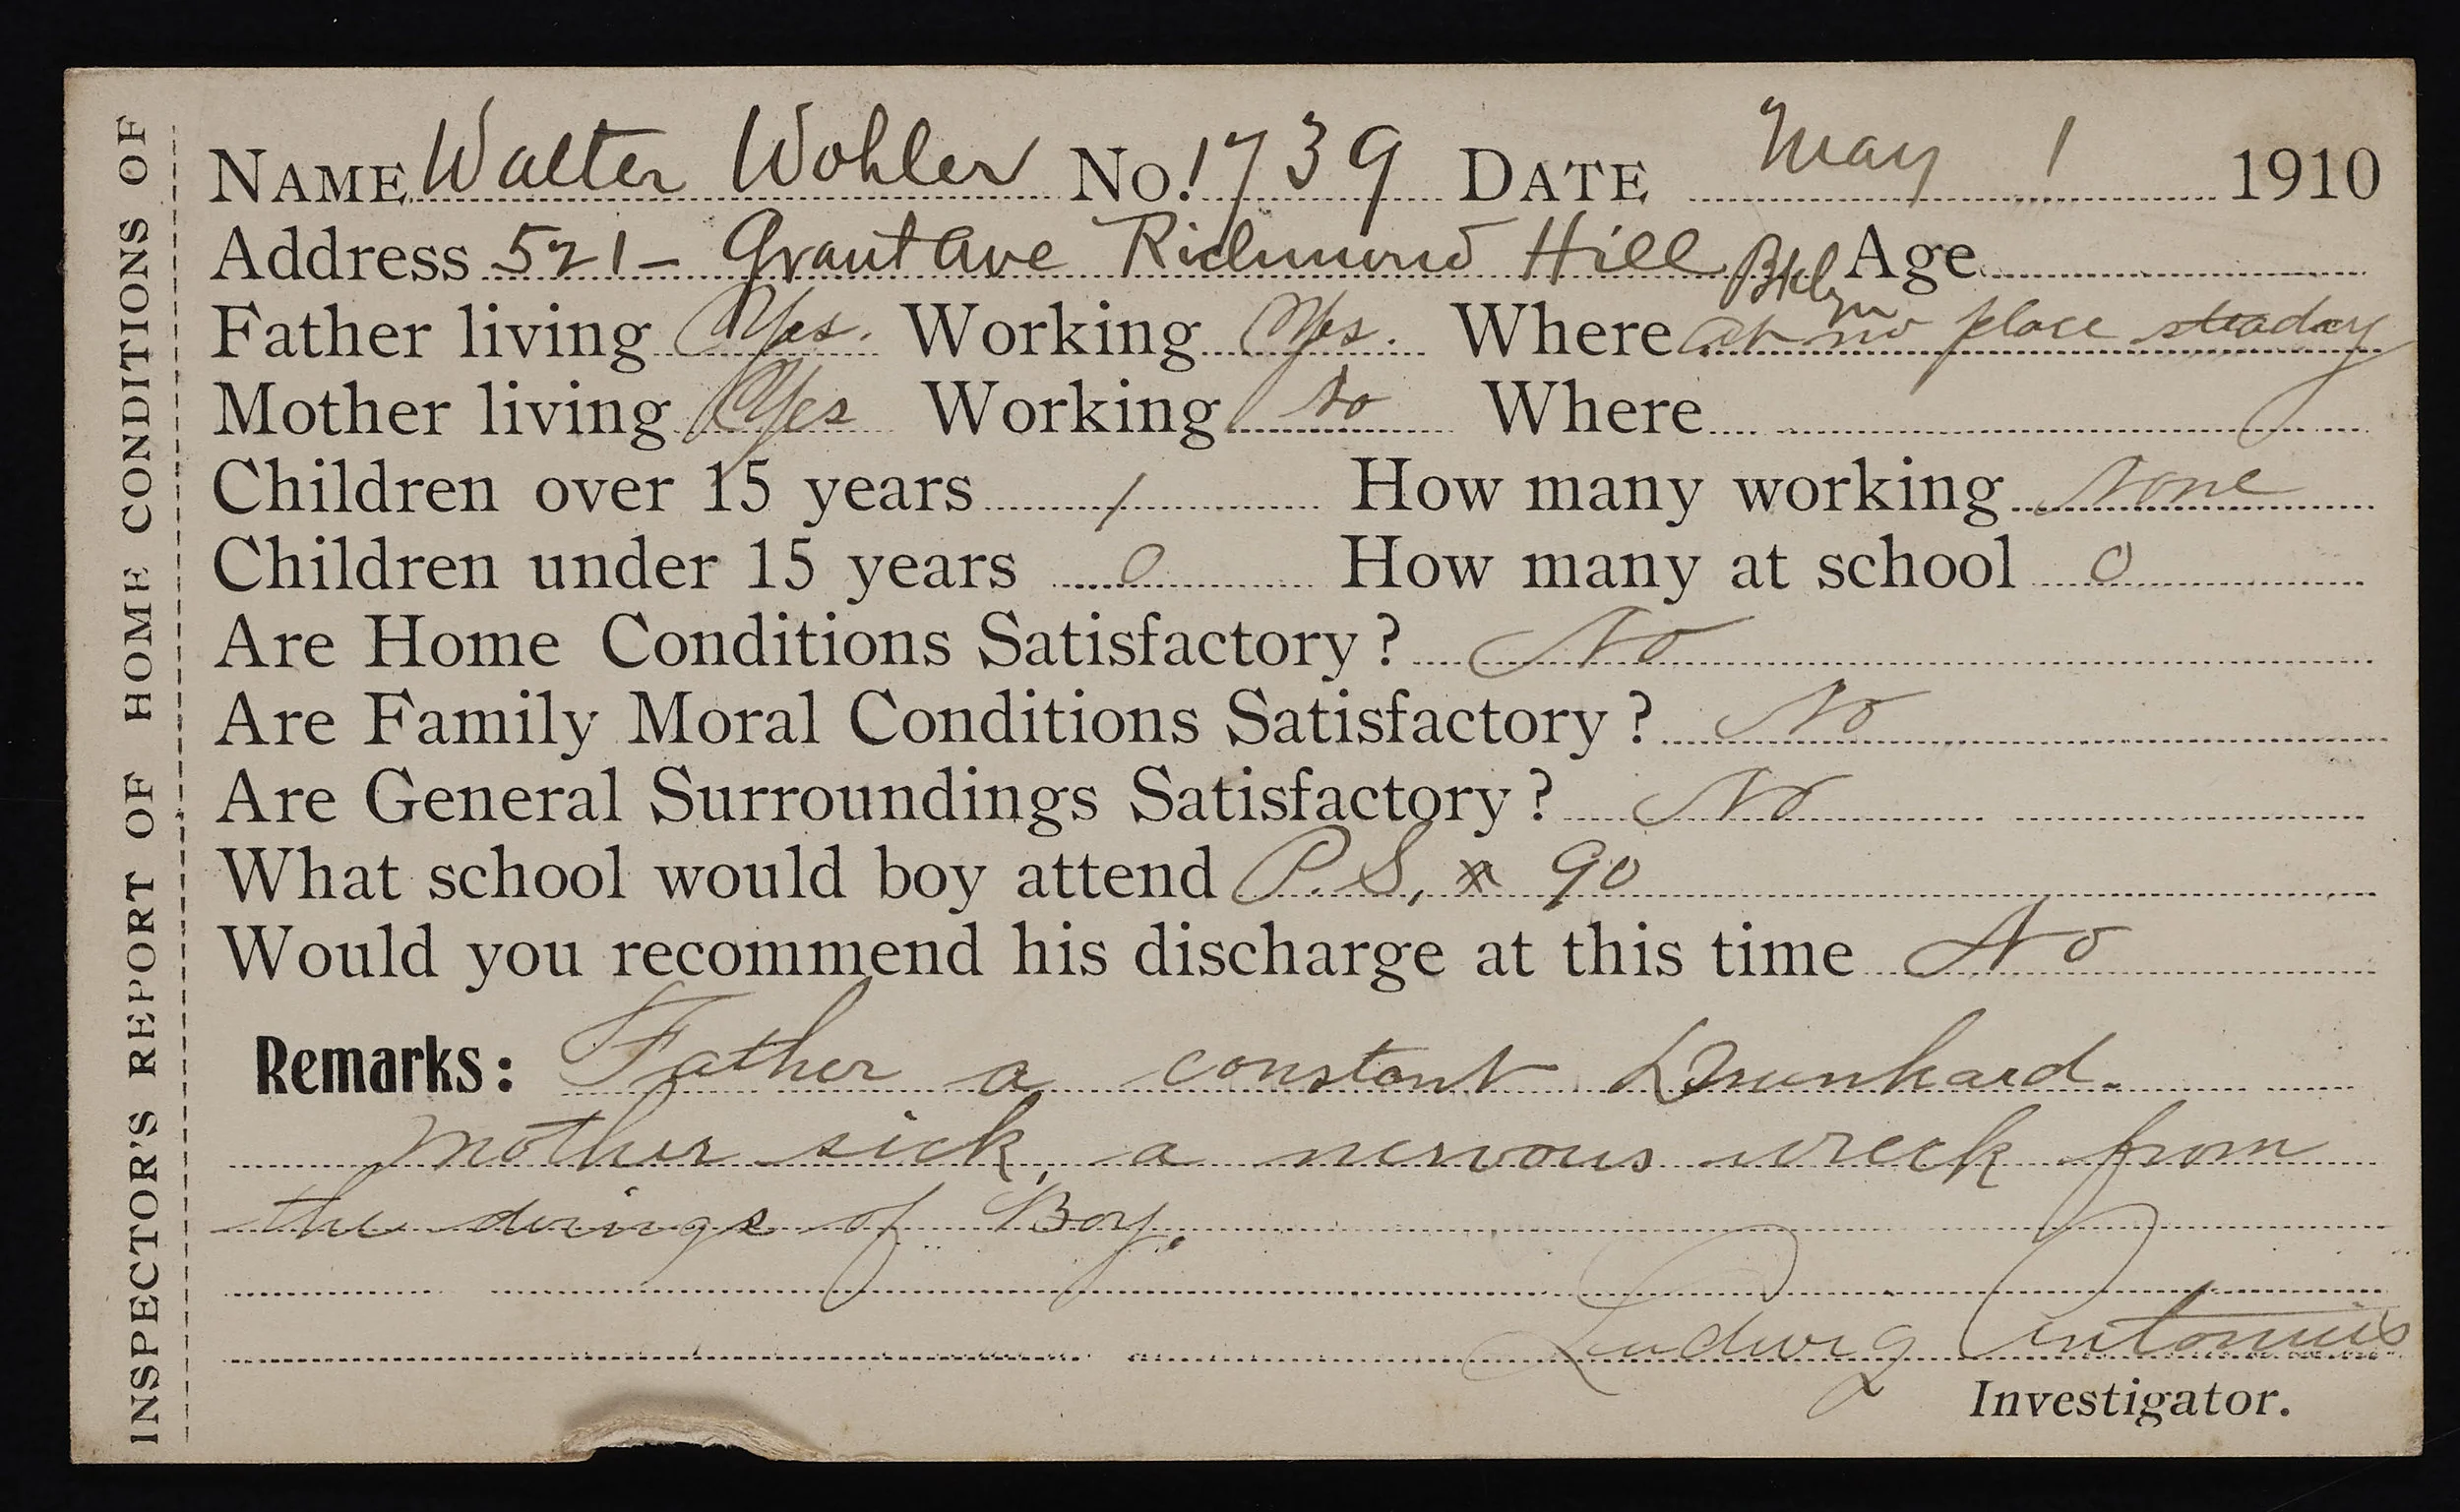 INSPECTOR'S REPORT OF HOME CONDITIONS OF
NAME Walter Wohler No. 1739 DATE May 1 1910
Address 521 - Grant Ave Richmond Hill Bklyn Age
Father living Yes. Working Yes. Where at no place steady
Mother living Yes Working No Where
Children over 15 years 1 How many working None
Children under 15 years 0 How many at school 0
Are Home Conditions Satisfactory? No
Are Family Moral Conditions Satisfactory? No
Are General Surroundings Satisfactory? No
What school would boy attend P.S. # 90
Would you recommend his discharge at this time No
Remarks: Father a constant Drunkard.
Mother sick, a nervous wreck from
the doings of Boy.
Ludwig Antonius
Investigator.